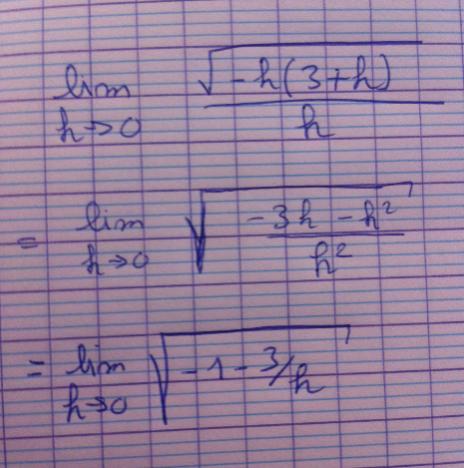 lim h→0 √(-h(3+h)) / h
= lim h→0 √((-3h - h²) / h²)
= lim h→0 √(-1 - 3/h)